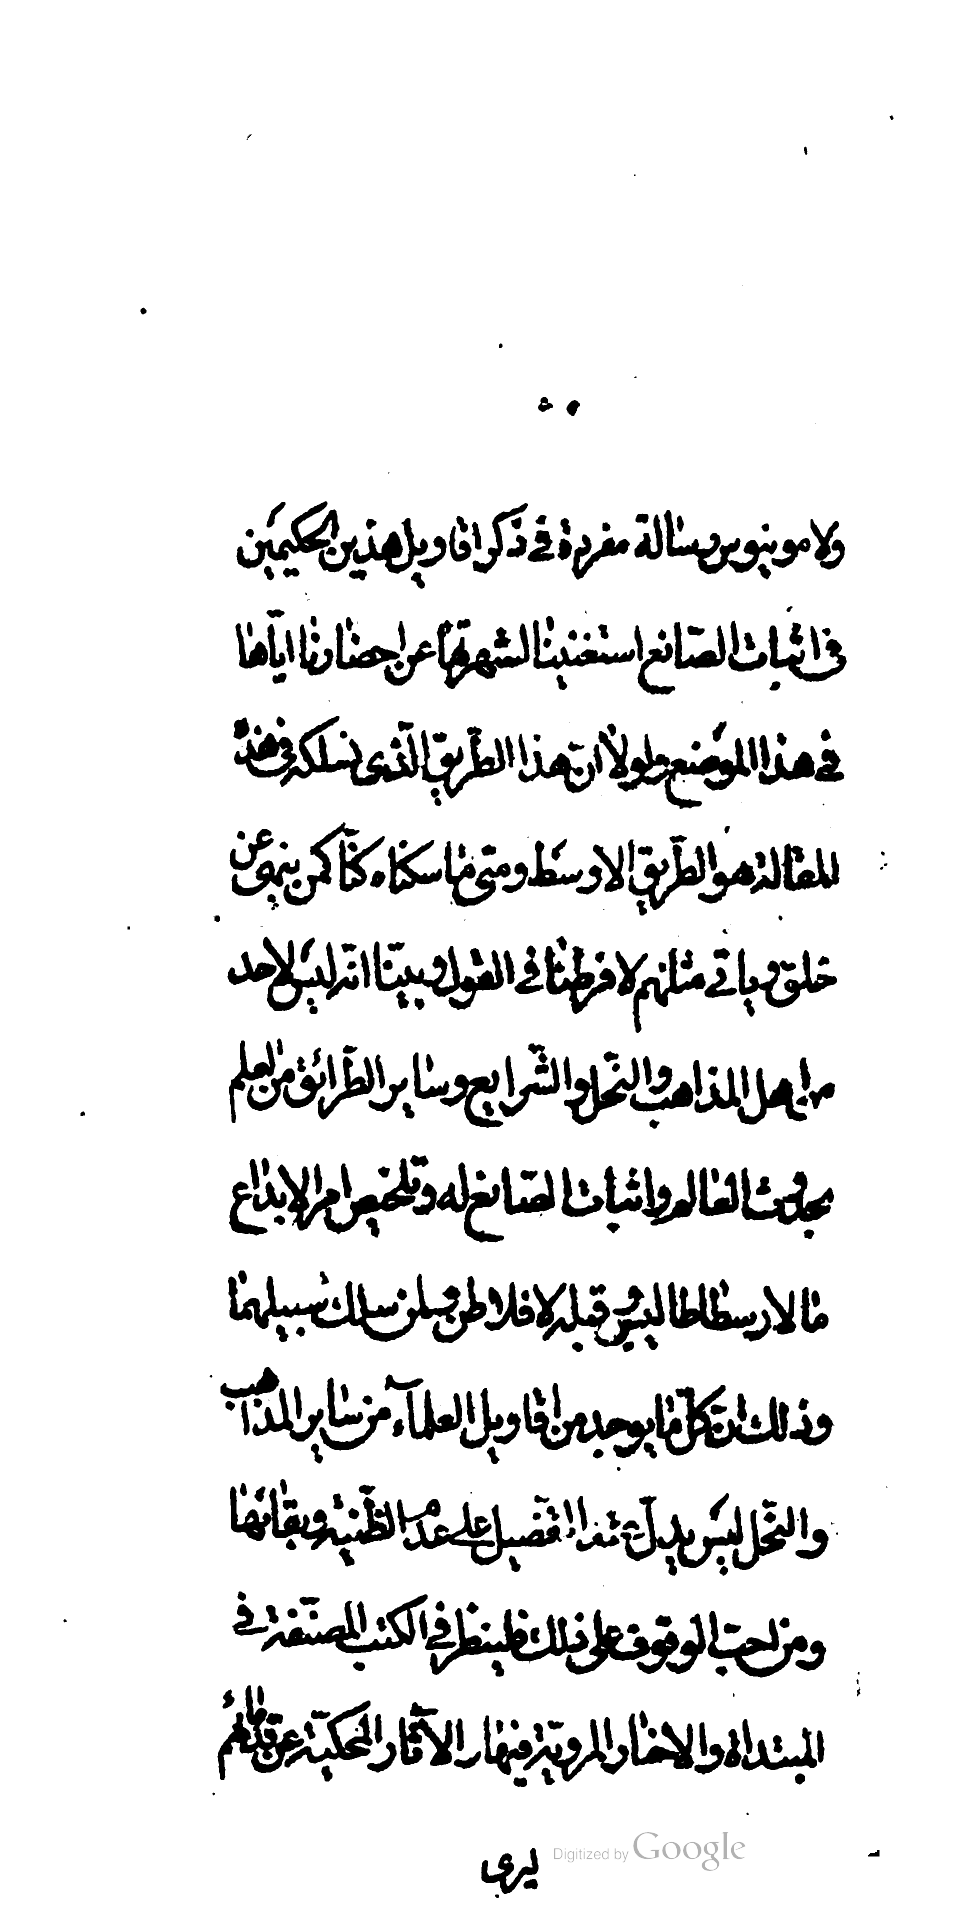 ولامونيوس رسالة مفردة في ذكر اقاويل هذين الحكيمين
في اثبات الصانع استغنينا لشهرتها عن احضارنا اياها
في هذا الموضع ولولا ان هذا الطريق الذي نسلكه في هذه
المقالة هو الطريق الاوسط ومتى ما سكناه كنا كمن ينهى عن
خلق وياتى مثلهم لافرطنا في القول وبينا انه ليس لاحد
من اهل المذاهب والنحل والشرايع وساير الطرائق من العلم
بحدوث العالم واثبات الصانع له وتلخيص امر الابداع
ما لارسطاطاليس وقبله لافلاطن ولمن سلك سبيلهما
وذلك ان كل ما يوجد من اقاويل العلماء من ساير المذاهب
والنحل ليس يدل على التفصيل على قدم الطينة وبقائها
ومن احب الوقوف على ذلك فلينظر في الكتب المصنفة في
المبتداة والاخبار المروية فيها والآثار المحكية عن قدمائهم
ليرى
Digitized by Google